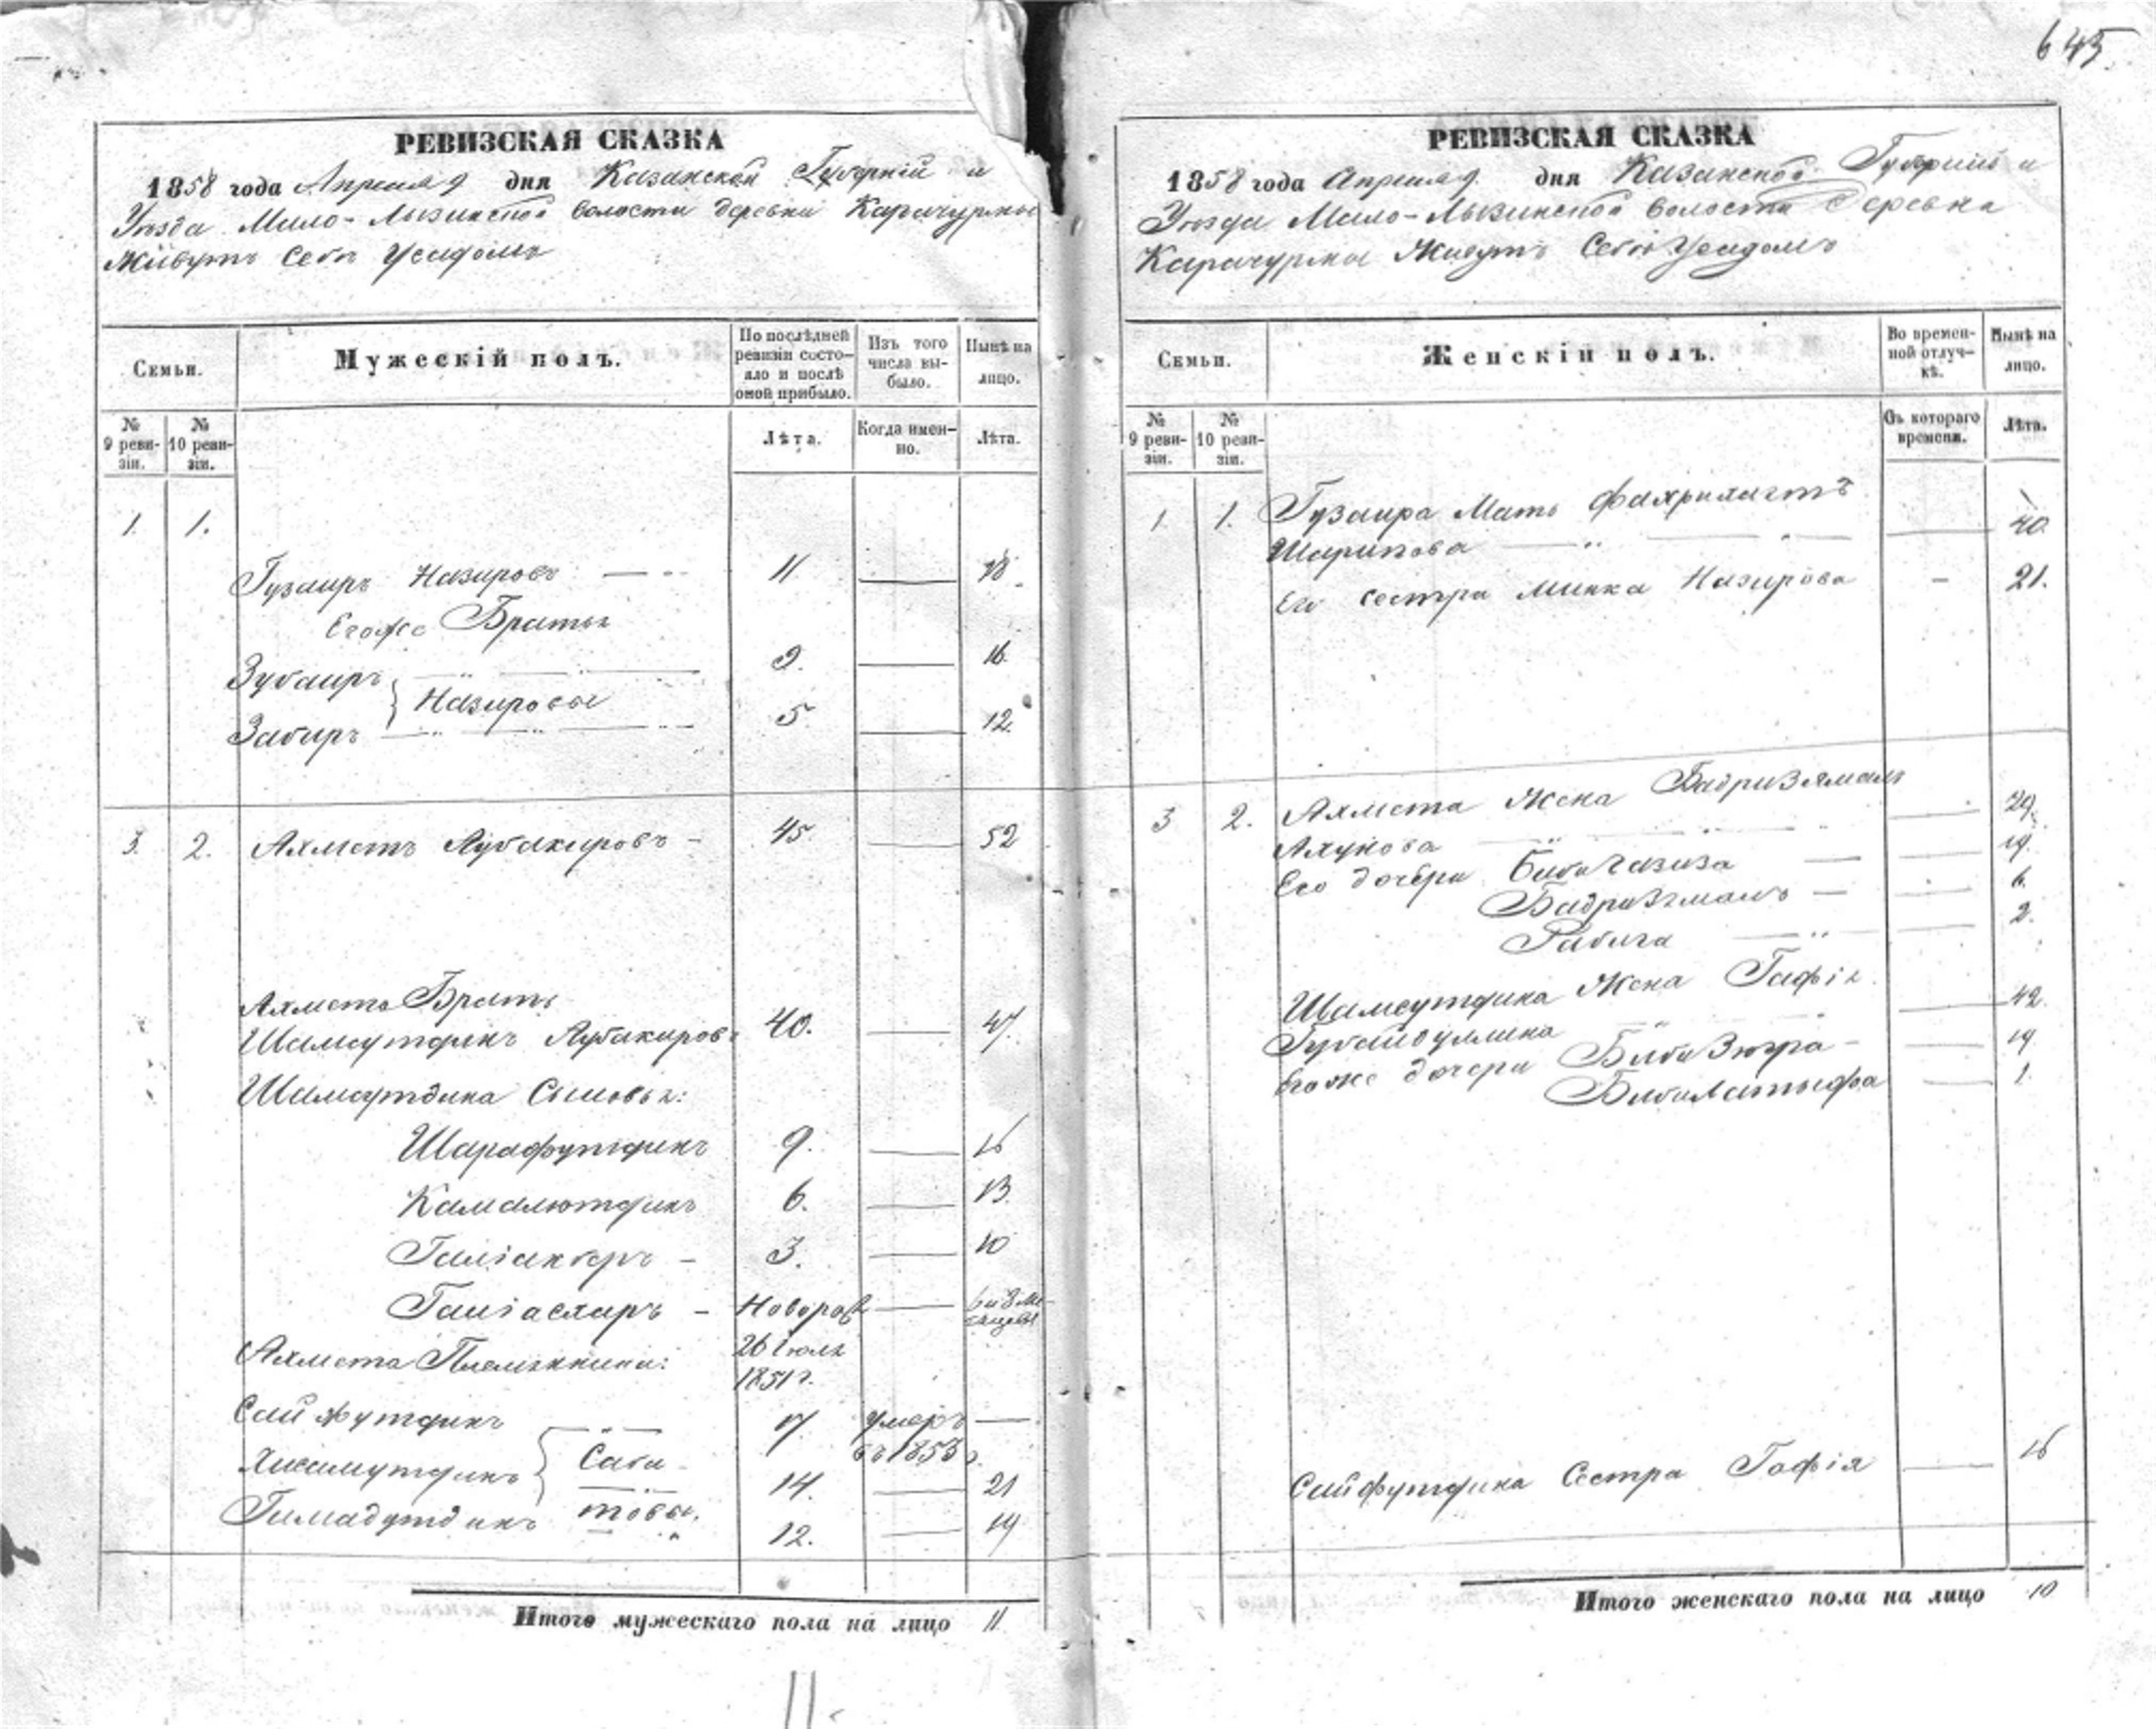 645.
РЕВИЗСКАЯ СКАЗКА
1858 года Апреля 9 дня Казанской Губерніи и
Уѣзда Мало-Лызинской волости деревни Карачурмы
Живутъ Себѣ Усадомъ
Семьи.
Мужескій полъ.
По послѣдней ревизіи состояло и послѣ оной прибыло.
Изъ того числа выбыло.
Нынѣ на лицо.
№ 9 ревизіи.
№ 10 ревизіи.
Лѣта.
Когда именно.
Лѣта.
1. 1.
Гузаиръ Назировъ 11 18
Егоже Братья
Зубаиръ 9. 16.
Назировы
Забиръ 5 12.
3. 2. Ахметъ Аубакировъ - 45. 52
Ахмета Братъ
Шамсутдинъ Аубакировъ 40. 47.
Шамсутдина Сыновья:
Шарафутдинъ 9. 16
Камалютдинъ 6. 13.
Галіакберъ - 3. 10
Галіасхаръ - Новорож 6 и 8 ме-
сяцевъ
26 Іюля
1851 г.
Ахмета Племянники:
Сайфутдинъ 17 умеръ
въ 1853 г.
Хисамутдинъ Саби- 14. 21
Гимадутдинъ товы. 12. 19
Итого мужескаго пола на лицо 11
11.
РЕВИЗСКАЯ СКАЗКА
1858 года Апреля 9. дня Казанской Губерніи и
Уѣзда Мало-Лызинской волости Деревни
Карачурмы Живутъ Себѣ Усадомъ
Семьи.
Женскій полъ.
Во временной отлучкѣ.
Нынѣ на лицо.
№ 9 ревизіи.
№ 10 ревизіи.
Съ котораго времени.
Лѣта.
1. 1. Гузаира Мать
Шарипова 40.
Его сестра Минка Назирова - 21.
3 2. Ахмета Жена Бадризямаль 29.
Ахунова
Его дочери Бибигазиза 19.
6.
Рабига 2.
Шамсутдина Жена Гафія 42.
Губайдуллина
Егоже дочери БибиЗюгра - 19
БибиЛатыфа 1.
Сайфутдина Сестра Гафія 16
Итого женскаго пола на лицо 10